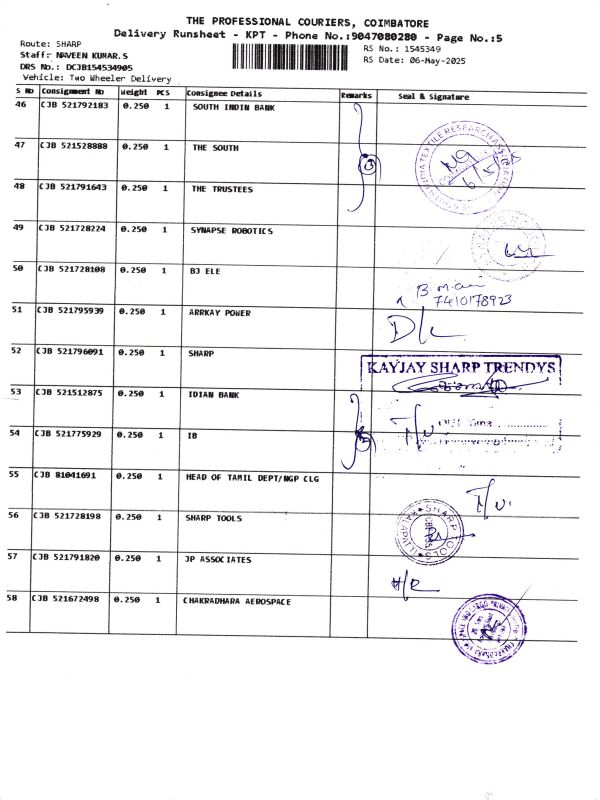 THE PROFESSIONAL COURIERS, COIMBATORE
Delivery Runsheet - KPT - Phone No.:9047080280 - Page No.:5
Route: SHARP
RS No.: 1545349
Staff: NAVEEN KUMAR.S
RS Date: 06-May-2025
DRS No.: DCJB154534905
Vehicle: Two Wheeler Delivery
S No Consignment No Weight PCS Consignee Details Remarks Seal & Signature
46 CJB 521792183 0.250 1 SOUTH INDIN BANK
47 CJB 521528888 0.250 1 THE SOUTH
48 CJB 521791643 0.250 1 THE TRUSTEES
49 CJB 521728224 0.250 1 SYNAPSE ROBOTICS
50 CJB 521728108 0.250 1 BJ ELE
B mani
7410178923
51 CJB 521795939 0.250 1 ARRKAY POWER
D/L
52 CJB 521796091 0.250 1 SHARP
KAYJAY SHARP TRENDYS
53 CJB 521512875 0.250 1 IDIAN BANK
54 CJB 521775929 0.250 1 IB
55 CJB 81041691 0.250 1 HEAD OF TAMIL DEPT/NGP CLG
56 CJB 521728198 0.250 1 SHARP TOOLS
SHARP TOOLS
57 CJB 521791820 0.250 1 JP ASSOCIATES
58 CJB 521672498 0.250 1 CHAKRADHARA AEROSPACE